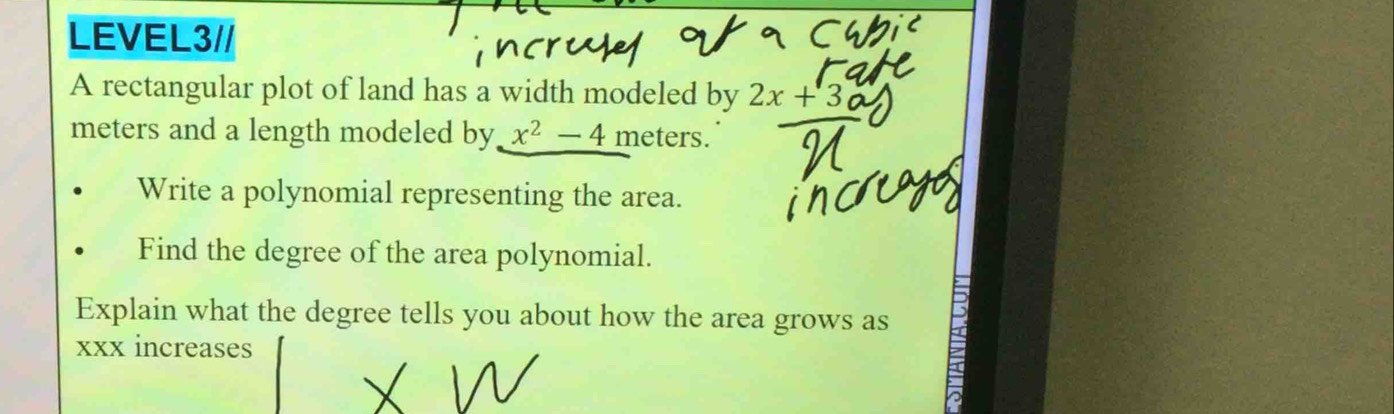 LEVEL3//
increases at a cubic
rate
A rectangular plot of land has a width modeled by 2x + 3
as
meters and a length modeled by x² − 4 meters.
x
increases
• Write a polynomial representing the area.
• Find the degree of the area polynomial.
Explain what the degree tells you about how the area grows as
xxx increases
l x w
ESMANIA.COM